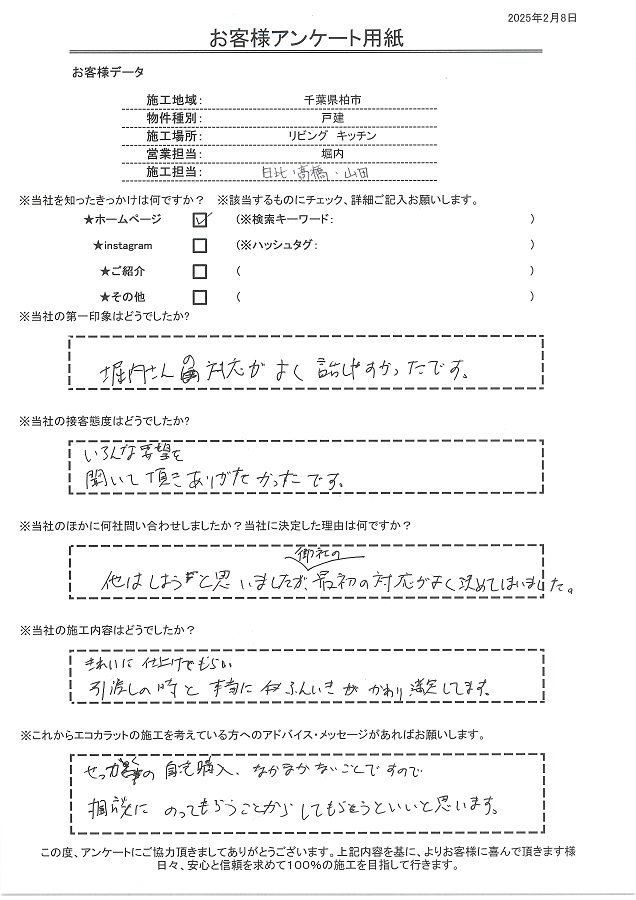 2025年2月8日
お客様アンケート用紙
お客様データ
施工地域： 千葉県柏市
物件種別： 戸建
施工場所： リビング キッチン
営業担当： 堀内
施工担当： 日比・高橋・山田
※当社を知ったきっかけは何ですか？ ※該当するものにチェック、詳細ご記入お願いします。
★ホームページ ☑ （※検索キーワード： ）
★instagram □ （※ハッシュタグ： ）
★ご紹介 □ （ ）
★その他 □ （ ）
※当社の第一印象はどうでしたか?
堀内さんの対応がよく 話しやすかったです。
※当社の接客態度はどうでしたか?
いろんな要望を
聞いて頂きありがたかったです。
※当社のほかに何社問い合わせしましたか？当社に決定した理由は何ですか？
御社の
他はしようと思いましたが、最初の対応がよく決めてしまいました。
※当社の施工内容はどうでしたか？
きれいに仕上げてもらい
引渡しの時と本当にふんいきがかわり満足してます。
※これからエコカラットの施工を考えている方へのアドバイス・メッセージがあればお願いします。
せっかくの自宅購入、なかなかないことですので
相談にのってもらうことからしてもらうといいと思います。
この度、アンケートにご協力頂きましてありがとうございます。上記内容を基に、よりお客様に喜んで頂きます様
日々、安心と信頼を求めて100%の施工を目指して行きます。